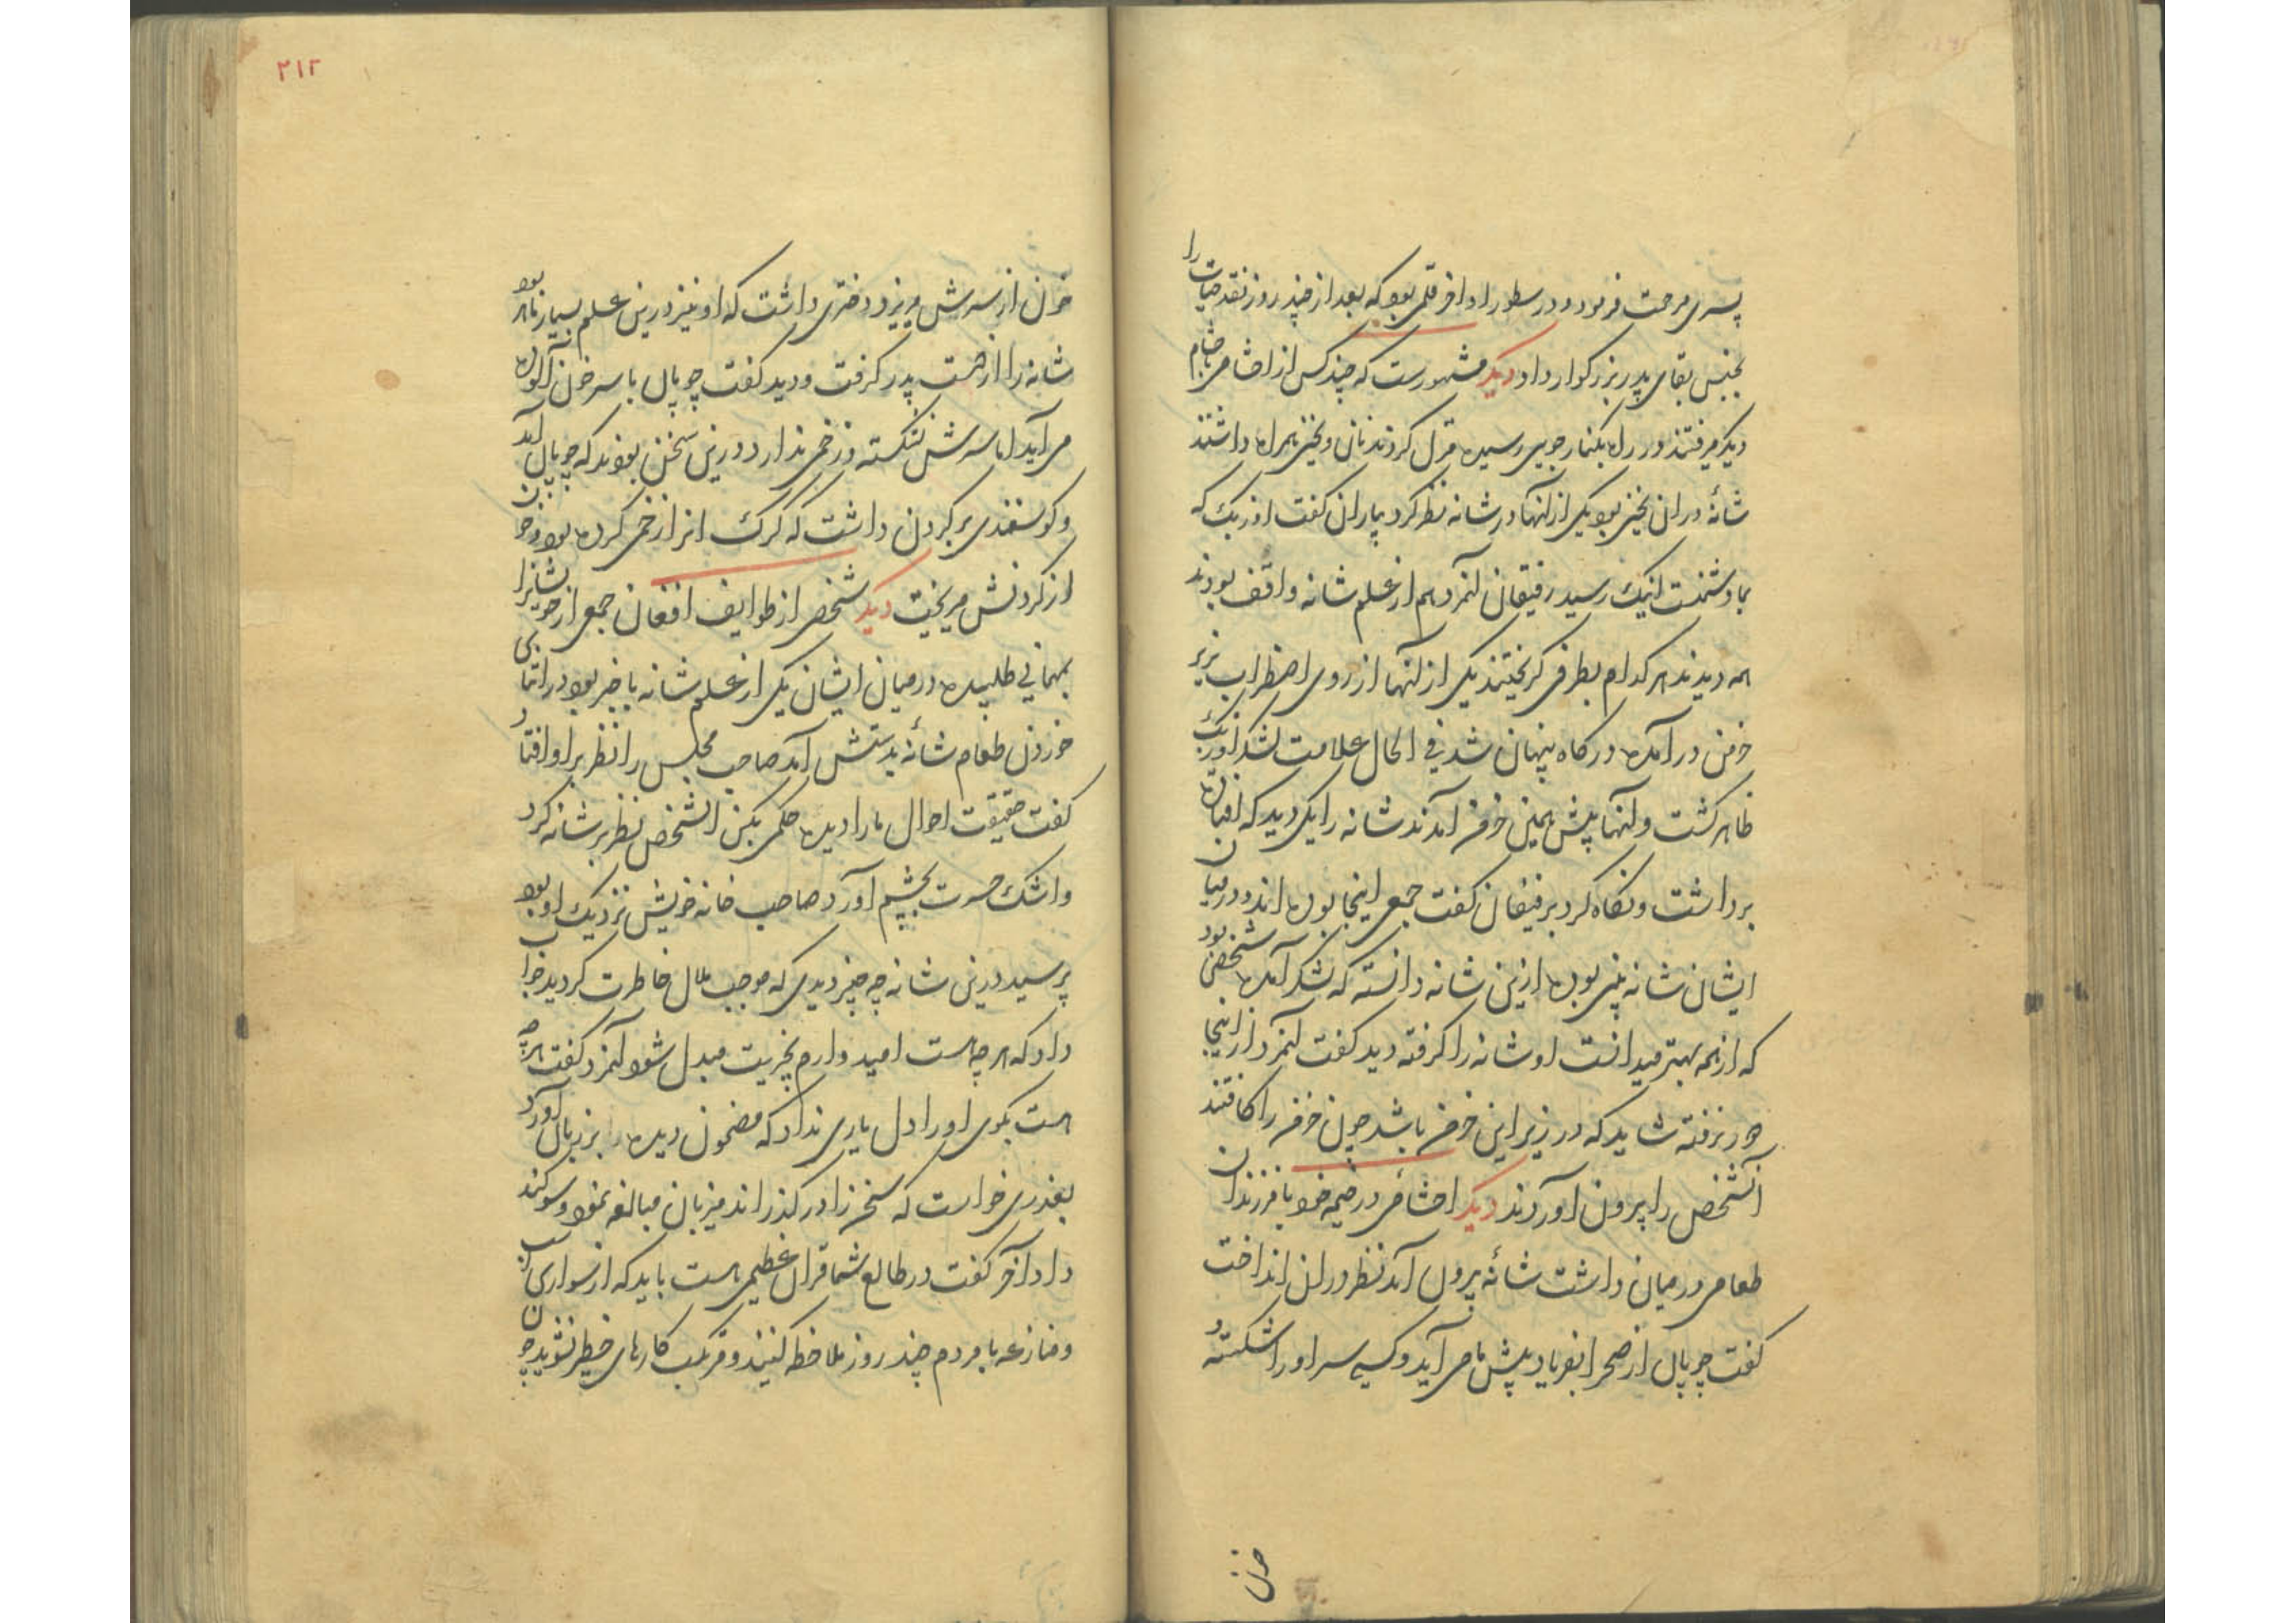 پسری مرحمت فرمود و در سطور اواخر قلمی بود که بعد از چند روز نقد حیات را
بجنس بقای پدر بزرگوار داد دیگر مشهورست که چند کس از احشام
دیگر میرفتند در راه بکنار جویی رسیده نزل کردند نان و یخنی همراه داشتند
شانهٔ در ان یخنی بود یکی از آنها در شانه نظر کرد بیاران گفت اوزبک که
بما دشمنست اینک رسید رفیقان آنمرد هم از علم شانه واقف بودند
همه دیدند هر کدام بطرفی گریختند یکی از آنها از روی اضطراب بزیر
خرمن در آمده در کاه پنهان شد فی الحال علامت لشکر اوزبک
ظاهر گشت و آنها پیش همین خرمن آمدند شانه را یکی دید که افتاده
برداشت و نگاه کرد برفیقان گفت جمعی اینجا بوده اند و در میان
ایشان شانه بینی بوده ازین شانه دانسته که لشکر آمده شخصی بود
که از همه بهتر میدانست او شانه را گرفته دید گفت آنمرد از اینجا
دور نرفته شاید که در زیر این خرمن باشد چون خرمن را کافتند
آنشخص را بیرون آوردند دیگر احشامی در خیمه خود با فرزندان
طعامی در میان داشت شانهٔ بیرون آمد نظر در ان انداخت
گفت چوپان از صحرا بفریاد پیش ما می آید و کسی سر او را شکسته و
خون
۲۱۲
خون از سرش میریزد دختری داشت که او نیز درین علم بسیار ماهر بود
شانه را از دست پدر گرفت و دید گفت چوپان با سر خون آلوده
می آید اما سرش نشکسته و زخمی ندارد درین سخن بودند که چوپان آمد
و گوسفندی بر گردن داشت که گرگ انرا زخمی کرده بود و خون
از گردنش میریخت دیگر شخصی از طوایف افغان جمعی از خویشانرا
بمهمانی طلبیده در میان ایشان یکی از علم شانه با خبر بود در اثنای
خوردن طعام شانهٔ بدستش آمد صاحب مجلس را نظر بر او افتاد
گفت حقیقت احوال ما را دیده حکمی بکن آنشخص نظر بر شانه کرد
و اشک حسرت بچشم آورد صاحب خانه خویش نزدیک او بود
پرسید درین شانه چه چیز دیدی که موجب ملال خاطرت گردید جواب
داد که هر چه هست امیدوارم بخیریت مبدل شود آنمرد گفت هر چه
هست بگوی او را دل یاری نداد که مضمون دیده را بر زبان آورد
بعذری خواست که سخن را درگذراند میزبان مبالغه نمود و سوگند
داد آخر گفت در طالع شما قران عظیمی هست باید که از سواری اسب
و منازعه با مردم چند روز ملاحظه کنید و مرتکب کارهای خطیر نشوید چون